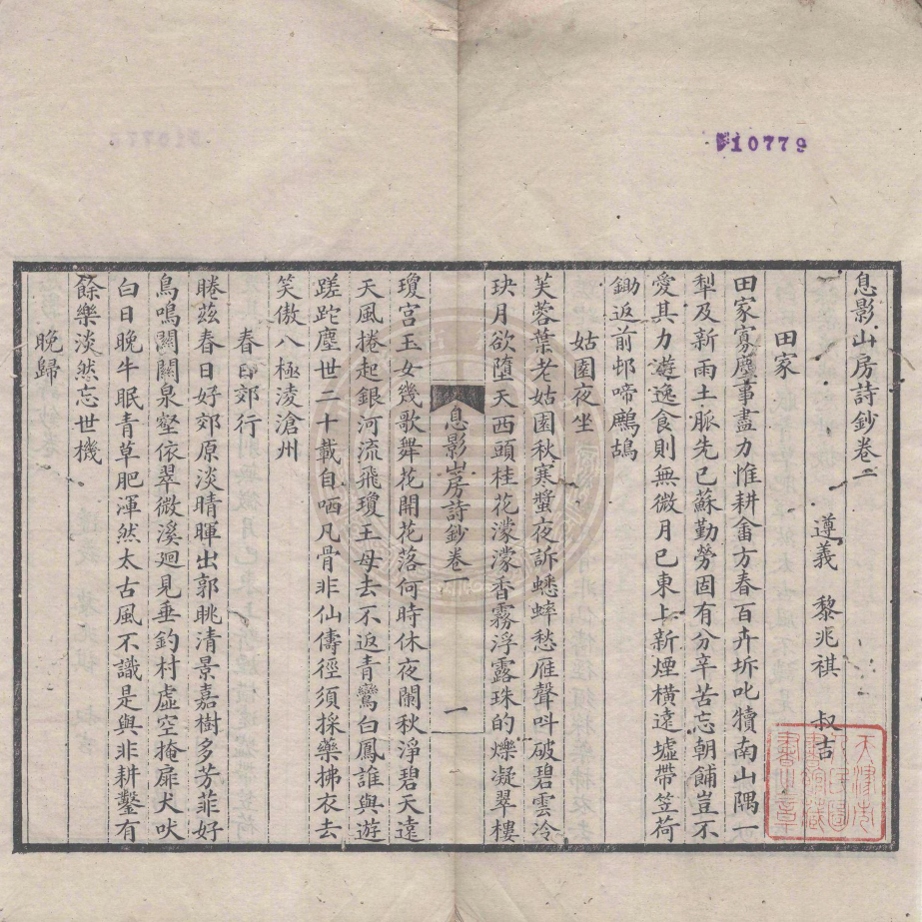 10779
息影山房詩鈔卷二
遵義 黎兆祺 叔吉
田家
田家寡塵事盡力惟耕畬方春百卉坼叱犢南山隅一
犁及新雨土脈先已蘇勤勞固有分辛苦忘朝餔豈不
愛其力遊逸食則無微月已東上新煙橫遠墟帶笠荷
鋤返前邨啼鷓鴣
姑園夜坐
芙蓉葉老姑園秋寒螿夜訴蟋蟀愁雁聲呌破碧雲冷
玦月欲墮天西頭桂花濛濛香霧浮露珠的爍凝翠樓
息影山房詩鈔卷一
一
瓊宮玉女幾歌舞花開花落何時休夜闌秋淨碧天遠
天風捲起銀河流飛瓊王母去不返青鸞白鳳誰與遊
蹉跎塵世二十載自哂凡骨非仙儔徑須採藥拂衣去
笑傲八極淩滄州
春日郊行
睠茲春日好郊原淡晴暉出郭眺清景嘉樹多芳菲好
鳥鳴關關泉壑依翠微溪迴見垂釣村虛空掩扉犬吠
白日晚牛眠青草肥渾然太古風不識是與非耕鑿有
餘樂淡然忘世機
晚歸
天津市
人民圖
書館藏
書之章